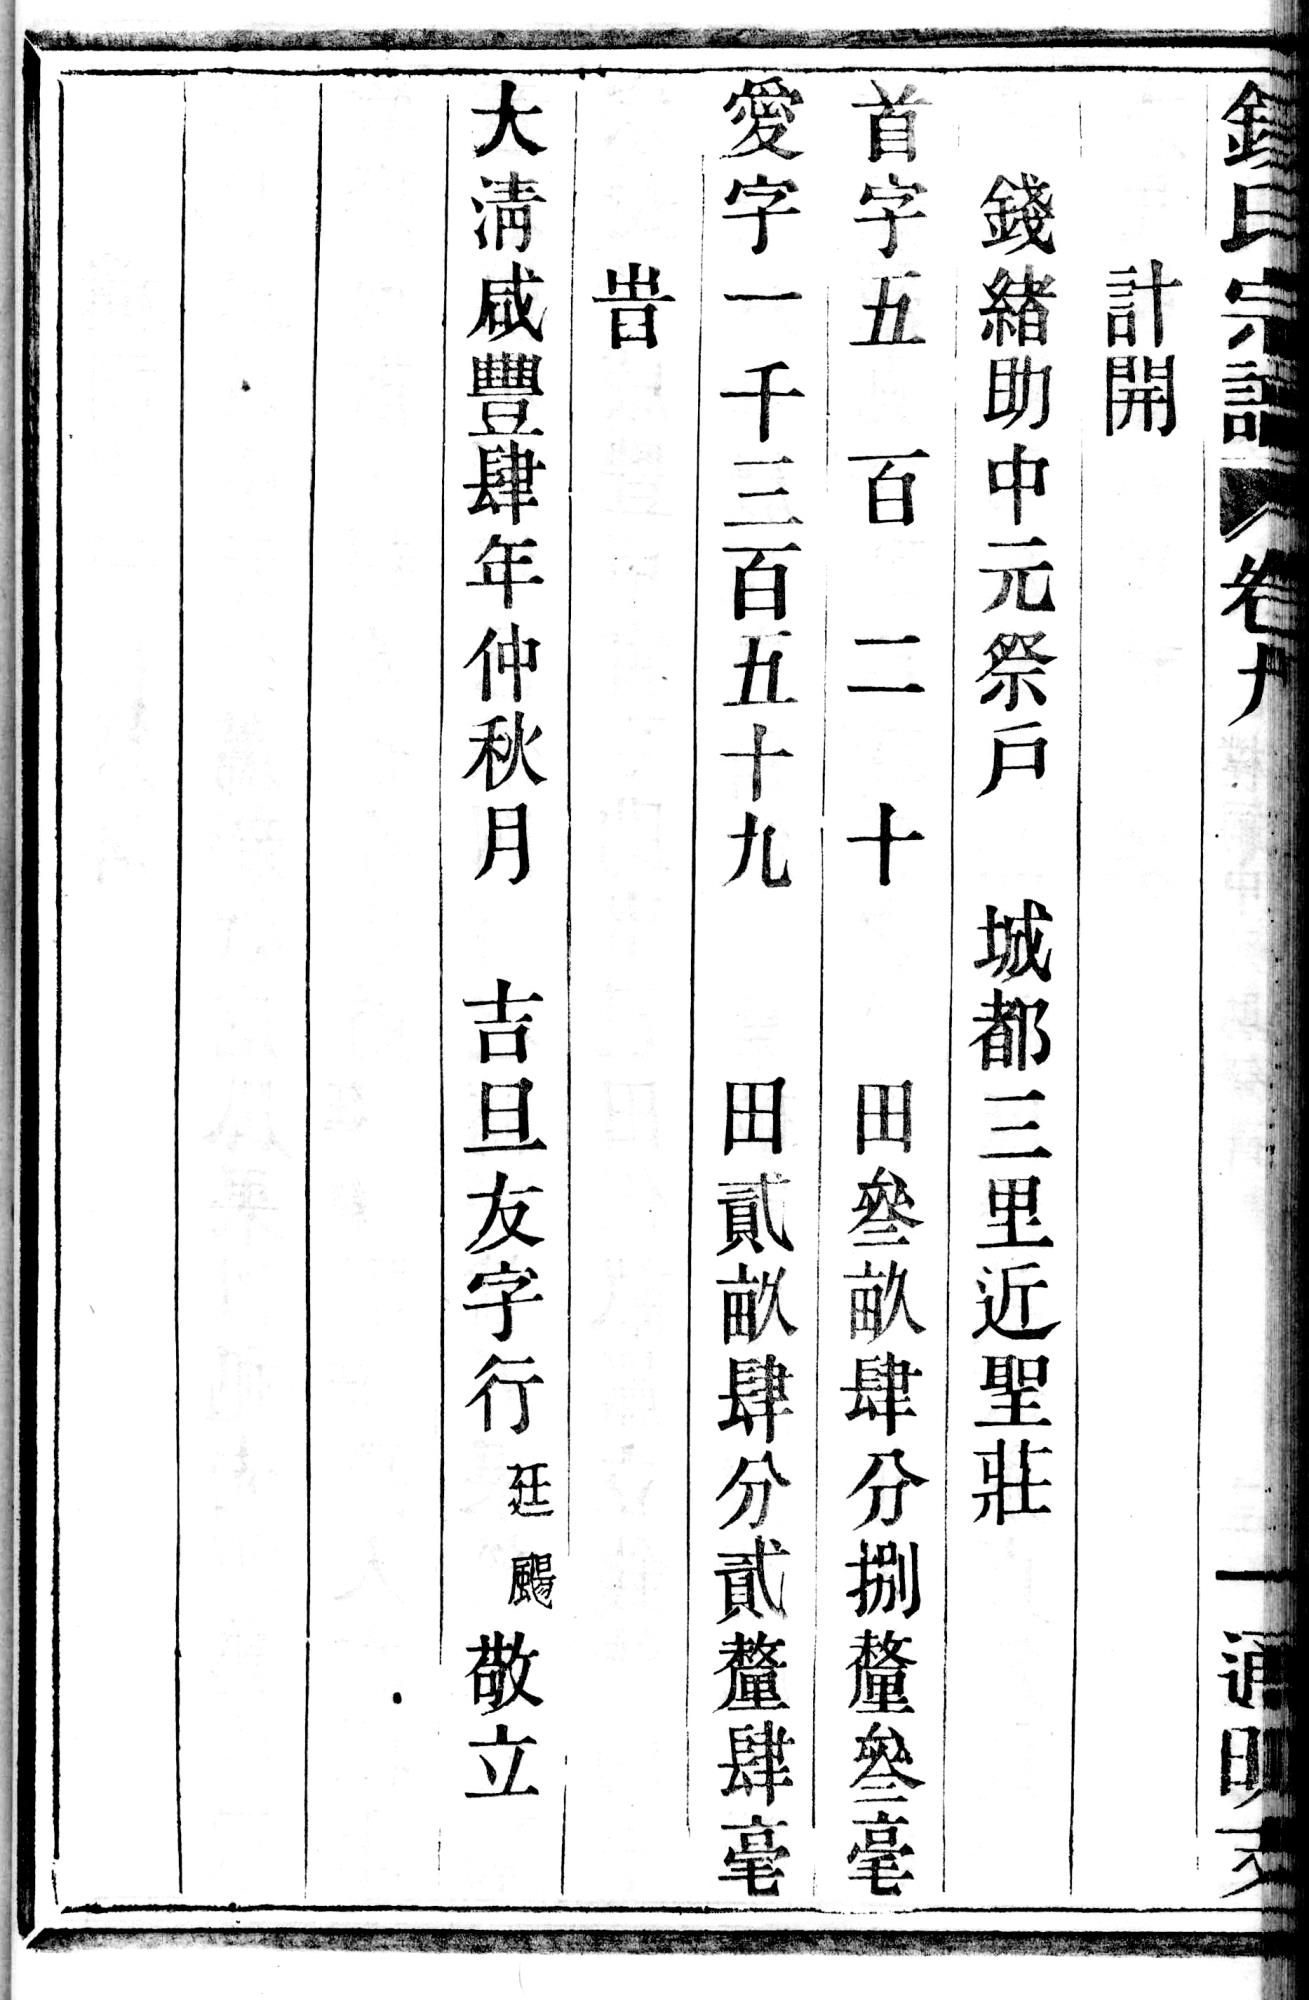 錢氏宗譜 卷九 一 通明支
計開
錢緒助中元祭戶 城都三里近聖莊
首字五百二十 田叄畝肆分捌釐叄毫
愛字一千三百五十九 田貳畝肆分貳釐肆毫
旹
大淸咸豐肆年仲秋月 吉旦友字行廷颺敬立